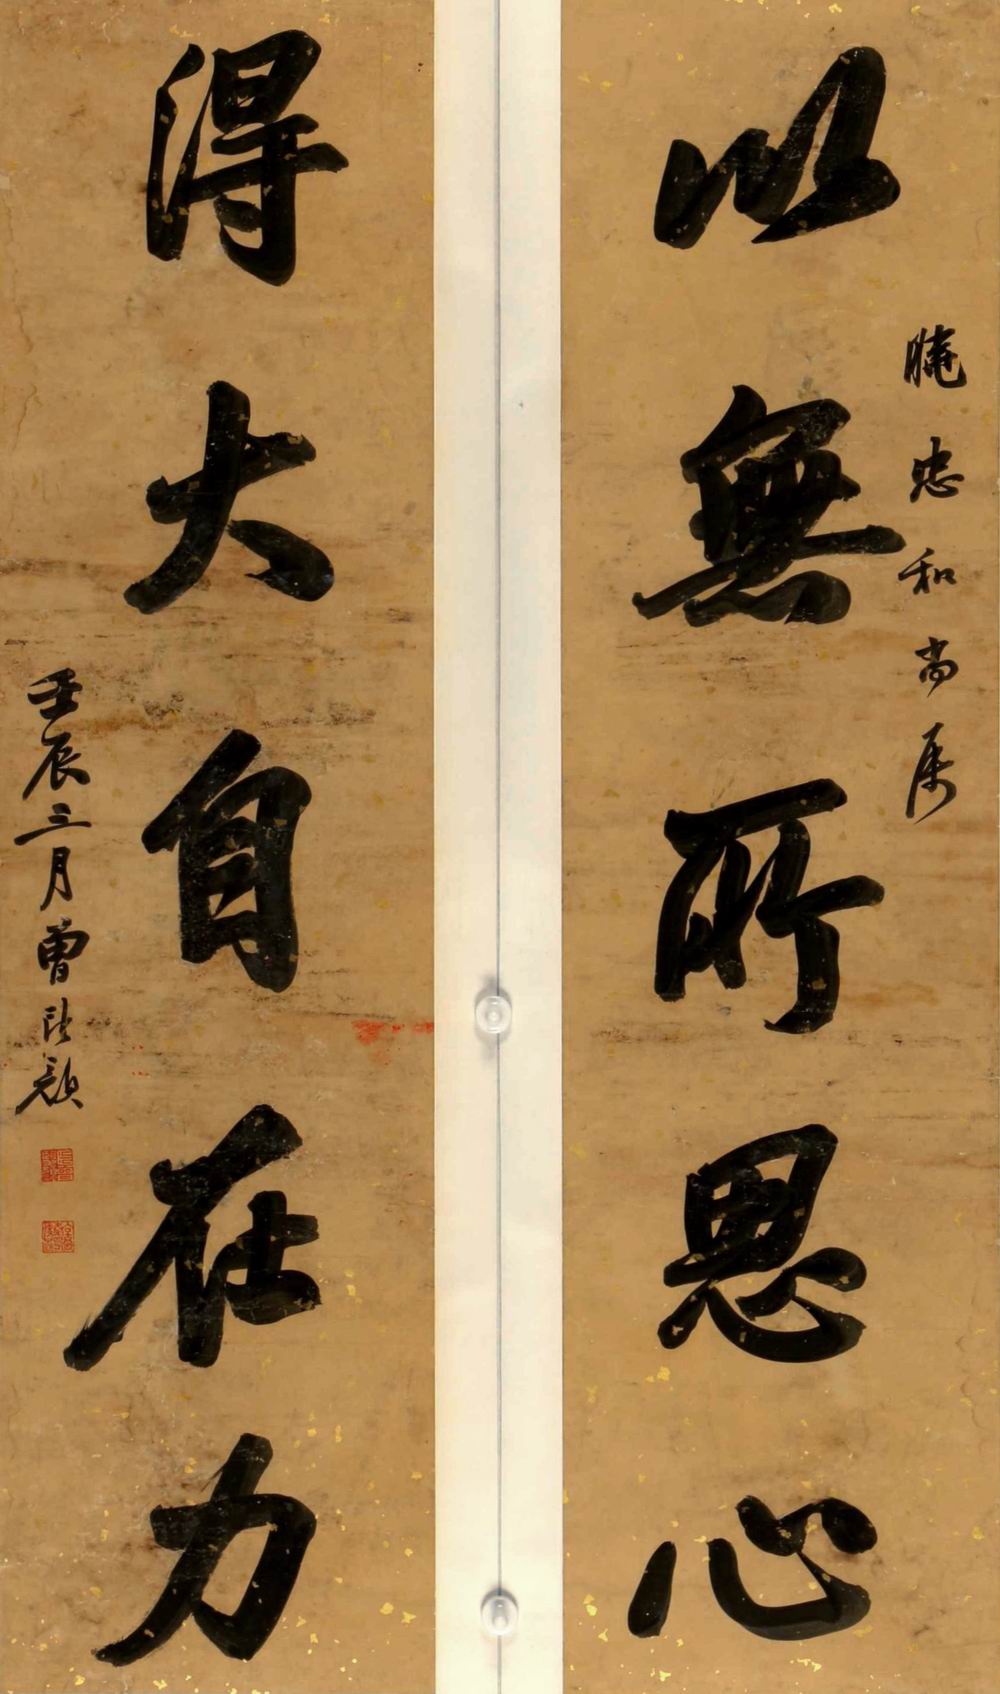 以無所思心
忠和尚属
得大自在力
壬辰三月曾熙